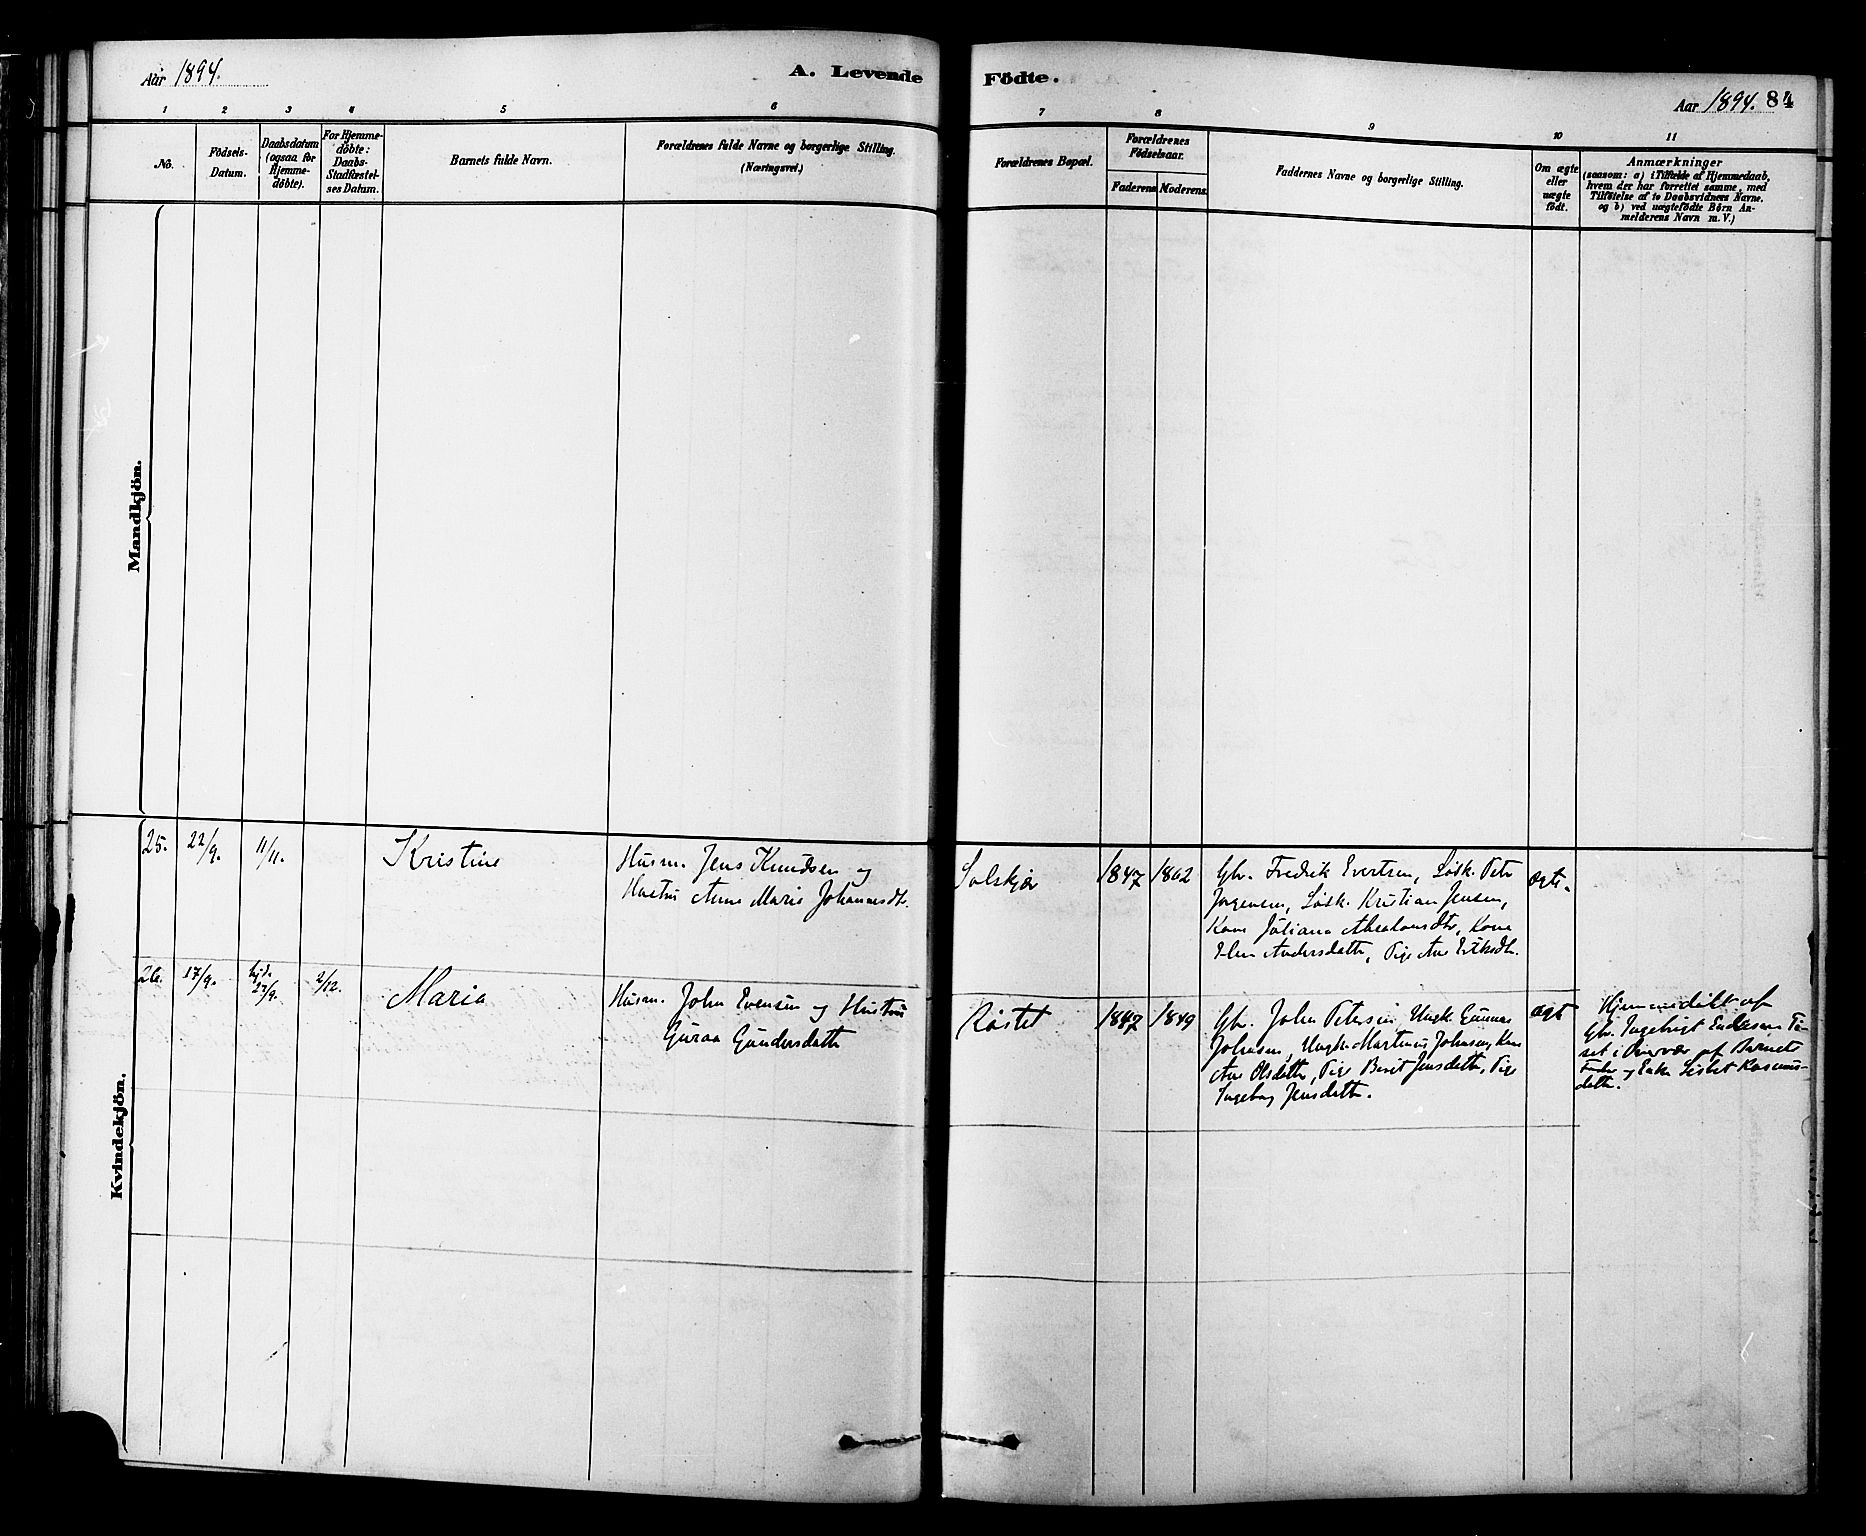 Aar 1894.
A. Levende Födte.
Aar 1894. 84
1 2 3 4 5 6 7 8 9 10 11
No.
Födsels-
Datum.
Daabsdatum
(ogsaa for
Hjemme-
döbte).
For Hjemme-
döbte:
Daabs-
Stadfæstel-
ses Datum.
Barnets fulde Navn.
Forældrenes fulde Navne og borgerlige Stilling.
(Næringsvei.)
Forældrenes Bopæl.
Forældrenes
Födselsaar.
Faderens Moderens.
Faddernes Navne og borgerlige Stilling.
Om ægte
eller
uægte
födt.
Anmærkninger
(saasom: a) i Tilfælde af Hjemmedaab,
hvem der har forrettet samme, med
Tilföielse af to Daabsvidners Navne.
og b) ved uægtefödte Börn An-
melderens Navn m. V.)
Mandkjön.
Kvindekjön.
25. 22/9. 11/11.
Kristine
Husm. Jens Knudsen og
Hustru Anne Marie Johannesdtr.
Solskjær
1847 1862
Gbr. Fredrik Evertsen, Løsk. Peter
Jørgensen, Løsk. Kristian Jensen,
Kone Juliana Abrahamsdtr, Kone
Elen Andersdatter, Pige Ane
ægte.
26. 17/9. hjd. 27/9. 2/12.
Maria
Husm. John Evensen og Hustru
Guraa Gundersdatter
Røstet
1847 1849
Gbr. John Petersen, Ungk. Gunnar
Johnsen, Ungk. Martinus Johnsen, Kone
Ane Olsdatter, Pige Berit Jensdatter, Pige
Ingeborg Jensdatter.
ægt
Hjemmedöbt af
Gbr. Ingebrigt Endresen
i Overvær af Barnets
Fader og Enke Lisbet Rasmus-
datter.